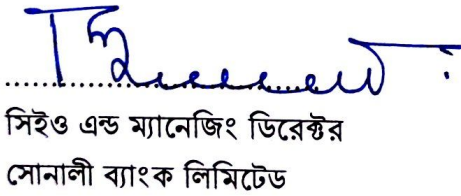 সিইও এন্ড ম্যানেজিং ডিরেক্টর
সোনালী ব্যাংক লিমিটেড